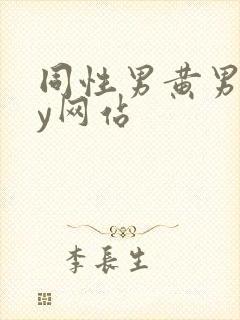 同性男黄男
y网佔
李長生